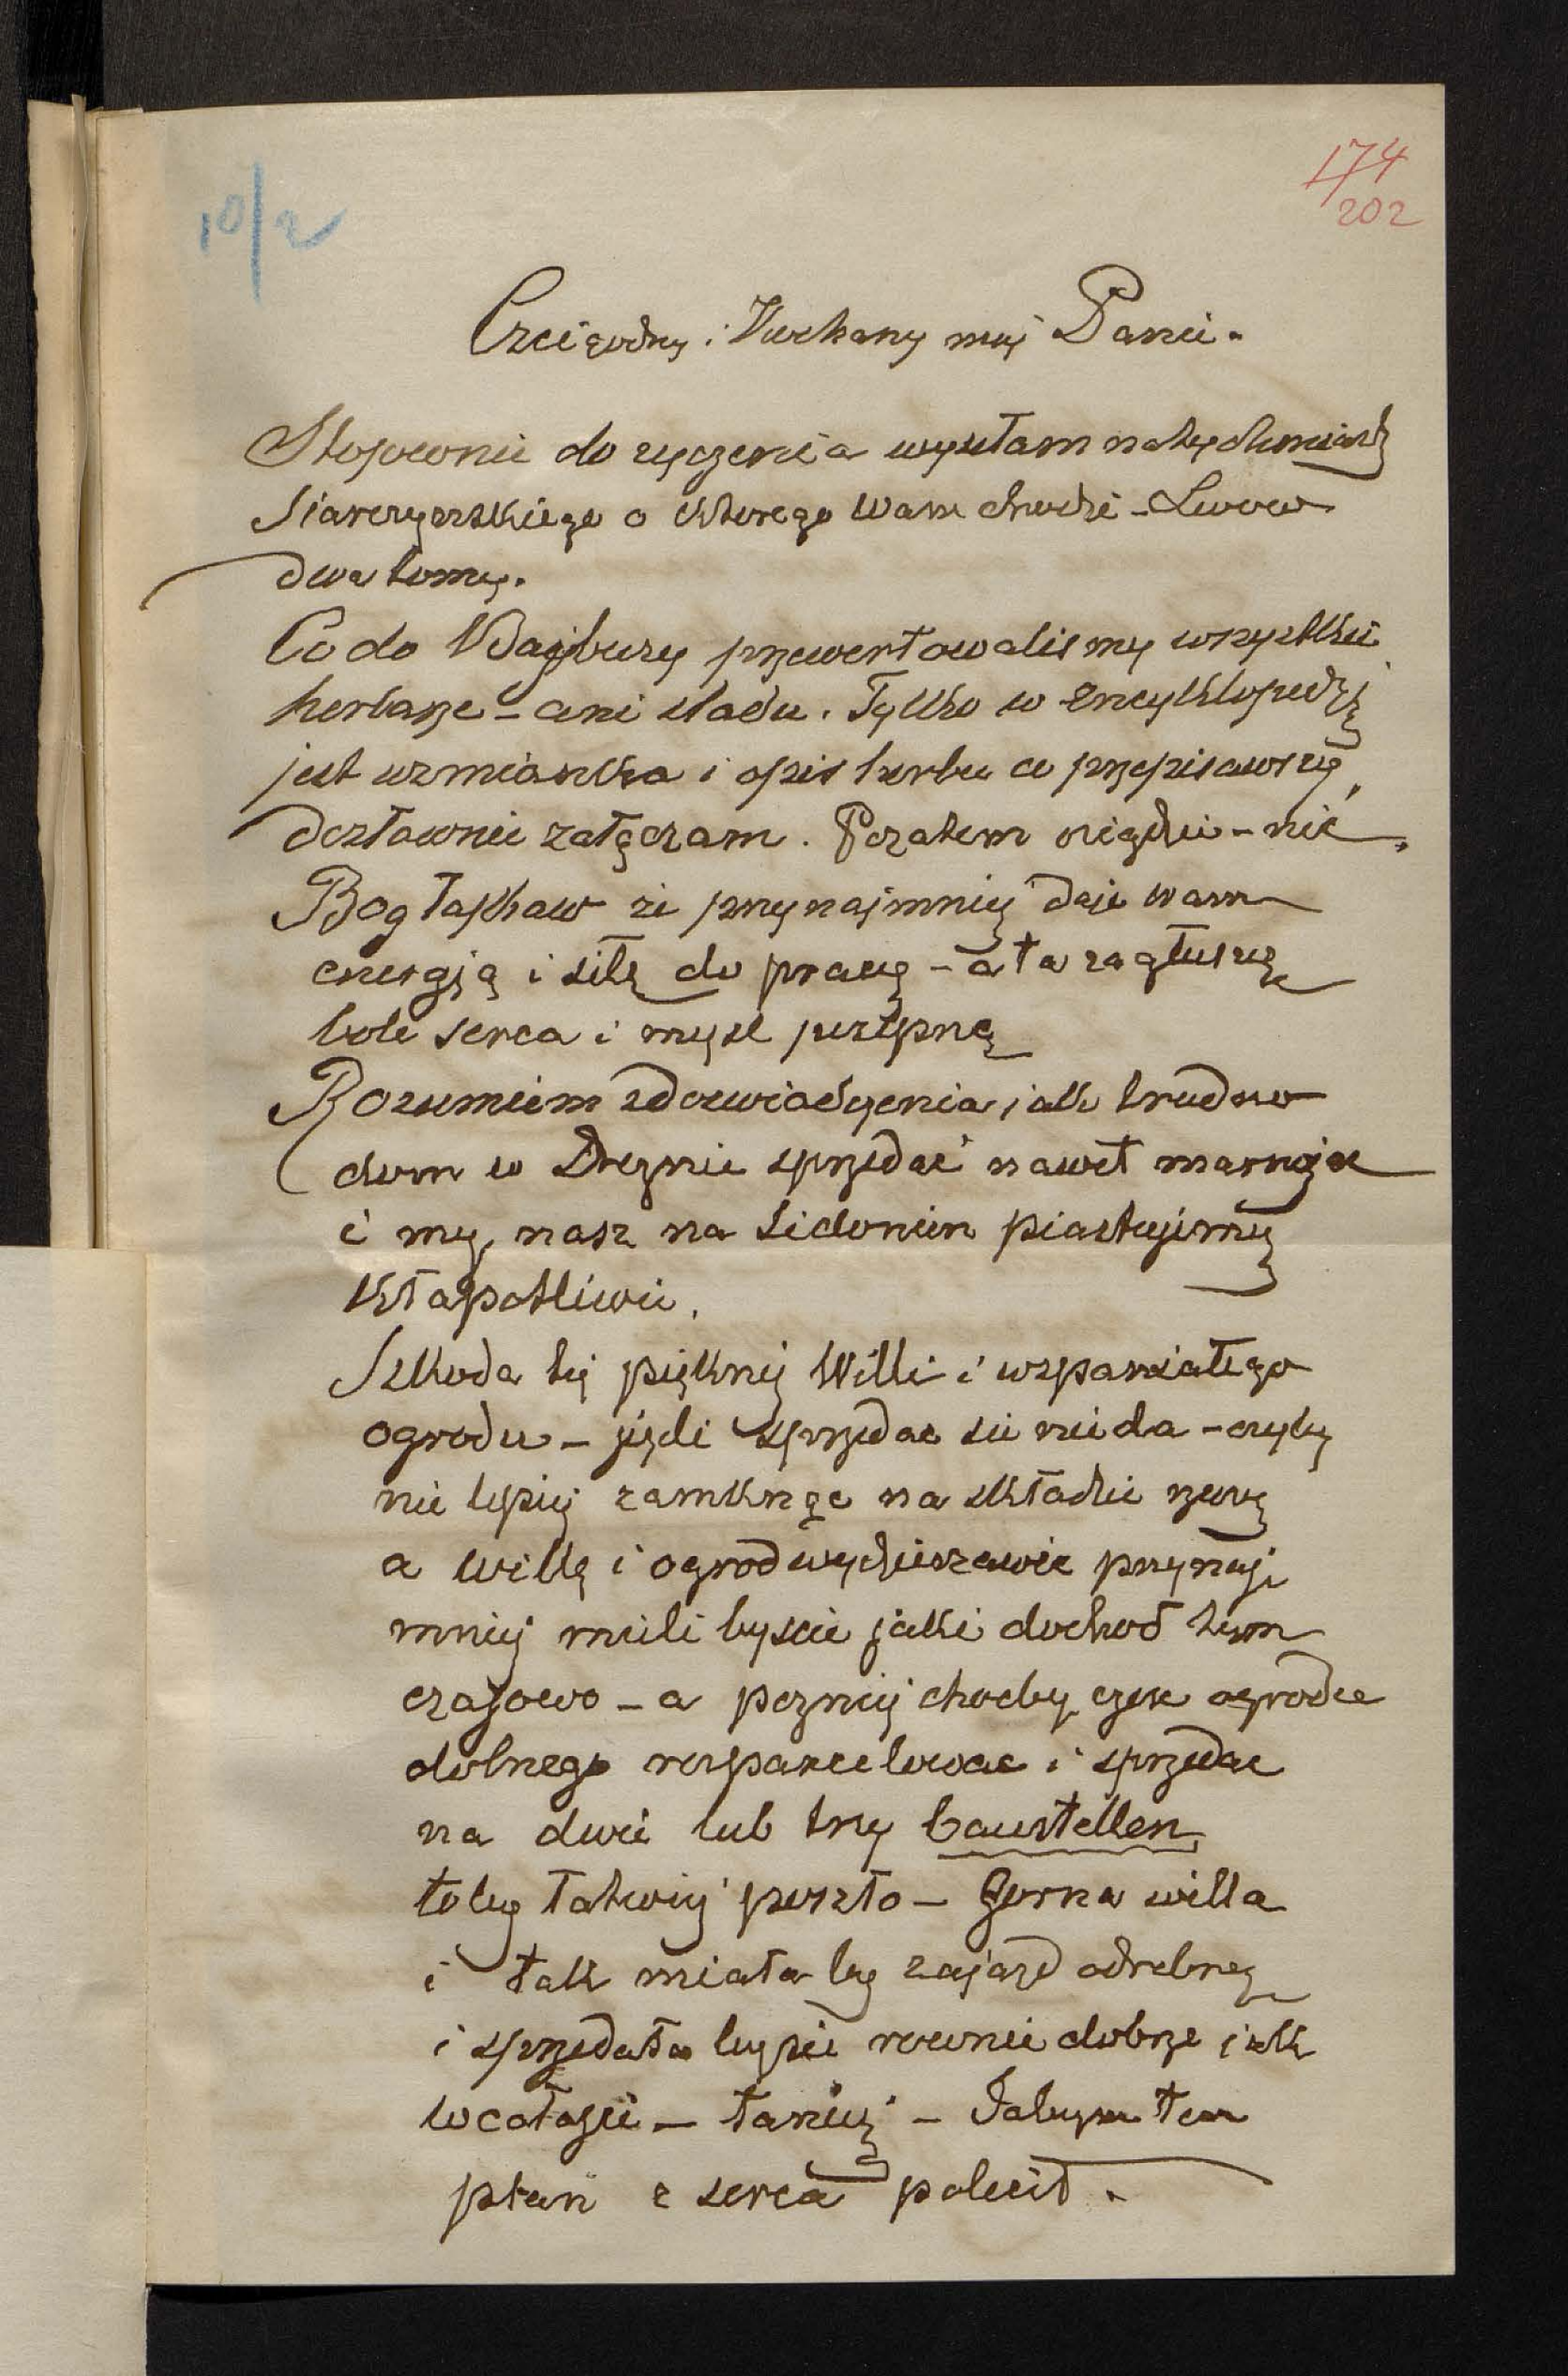 10/2
174
202
Czcigodny i Kochany mój Panie.
Stosownie do życzenia wysełam natychmiast
Siarczyńskiego o ktorego Wam chodzi – Lwow
dwa tomy.
Co do Wajbury przewertowalismy wszystkie
herbarze – ani sladu. Tylko w Encyklopedji
jest wzmianka i opis herbu co przepisawszy
dosłownie załączam. Pozatem nigdzie – nic.
Bog łaskaw że przynajmniej daje wam
energją i siłę do pracy – a ta zagłuszy
bole serca i mysl posępną
Rozumiem z doswiadczenia jak trudno
dom w Dreznie sprzedać nawet marnując
i my nasz na Sidonien piastujemy
kłapotliwie.
Szkoda tej pięknej Willi i wspaniałego
ogrodu – jezli sprzedac sie nie da – czyby
nie lepiej zamknąc na składzie rzeczy
a willę i ogrod wydzierzawic przynaj
mniej mieli byscie jaki dochod tym
czasowo – a pozniej chocby częsc ogrodu
dolnego rozparcelowac i sprzedac
na dwie lub trzy baustellen
toby łatwiej poszło – Gorna willa
i tak miała by zajazd odrębny
i sprzedała by sie rownie dobrze jak
w całosci – taniej – Jabym ten
plan z serca polecił.